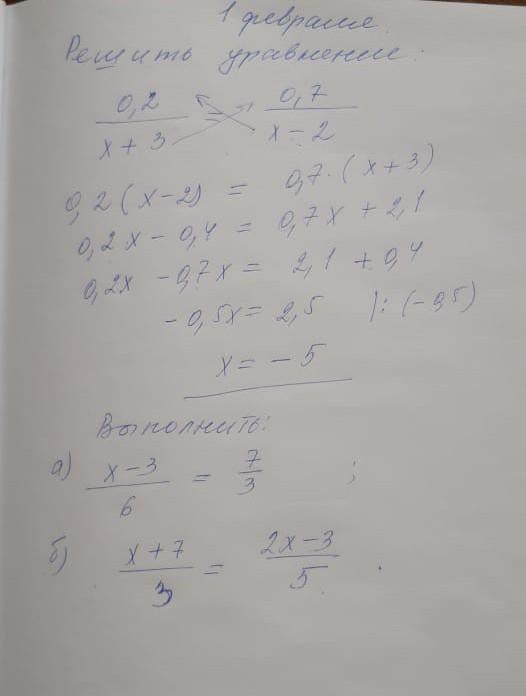 1 февраля.
Решить уравнение:
0,2/(x+3) = 0,7/(x-2)
0,2(x-2) = 0,7·(x+3)
0,2x - 0,4 = 0,7x + 2,1
0,2x - 0,7x = 2,1 + 0,4
-0,5x = 2,5 |:(-0,5)
x = -5
Выполнить:
а) (x-3)/6 = 7/3 ;
б) (x+7)/3 = (2x-3)/5 .